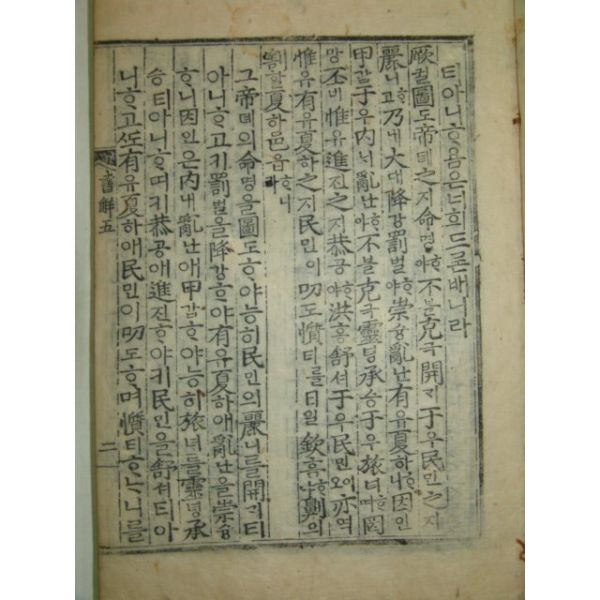 티아니ᄒᆞ욤은너희드론배니라
厥궐圖도帝뎨之지命명ᄒᆞ야不블克극開ᄀᆡ于우民민之지
麗니ᄒᆞ고乃내大대降강罰벌ᄒᆞ야崇슝亂난有유夏하ᄒᆞ니因인
甲갑于우內ᄂᆡ亂난ᄒᆞ야不블克극靈령承승于우旅녀ᄒᆞ며罔
망丕비惟유進진之지恭공ᄒᆞ야洪홍舒셔于우民민이오亦역
惟유有유夏하之지民민이叨도懫티를日일欽흠ᄒᆞ야劓의
割할夏하邑읍ᄒᆞ니라
그帝뎨의命명을圖도ᄒᆞ야능히民민의麗니를開ᄀᆡ티
아니ᄒᆞ고키罰벌을降강ᄒᆞ야有유夏하애亂난을崇슝
ᄒᆞ니因인은內ᄂᆡ亂난애甲갑ᄒᆞ야능히旅녀를靈령承
승티아니ᄒᆞ며키恭공애進진ᄒᆞ야키民민을舒셔티아
니ᄒᆞ고ᄯᅩ有유夏하애民민이叨도ᄒᆞ며懫티ᄒᆞᄂᆞ니를
書解五 二